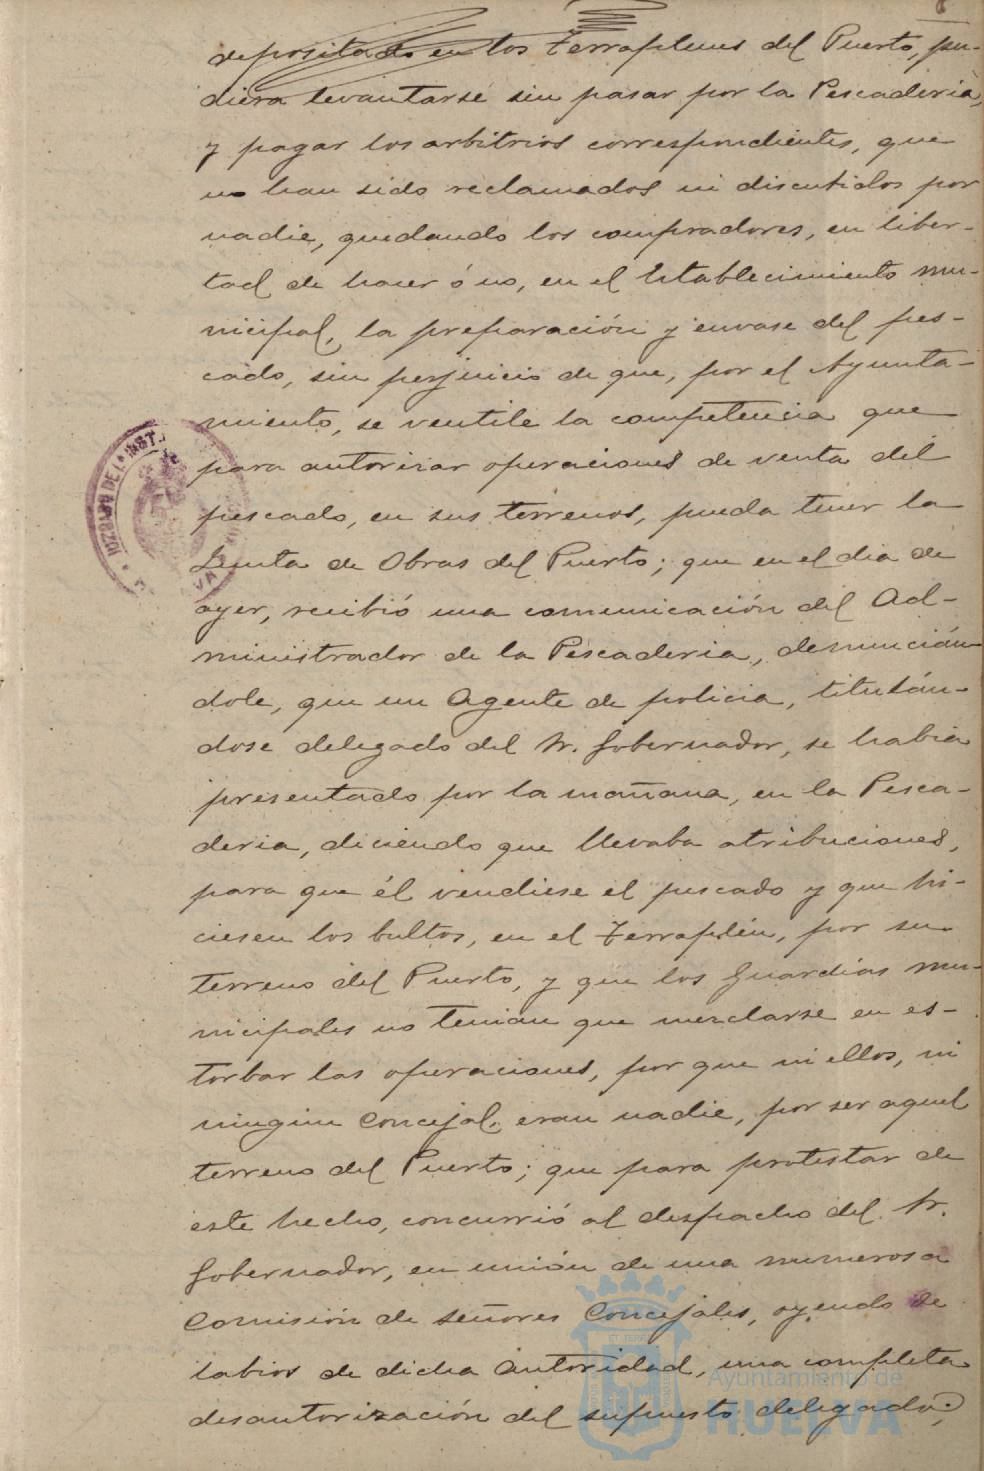 8
depositado en los Terraplenes del Puerto, pu-
diera levantarse sin pasar por la Pescaderia,
y pagar los arbitrios correspondientes, que
no han sido reclamados ni discutidos por
nadie, quedando los compradores, en liber-
tad de hacer ó no, en el Establecimiento mu-
nicipal, la preparación y envase del pes-
cado, sin perjuicio de que, por el Ayunta-
miento, se ventile la competencia que
para autorizar operaciones de venta del
pescado, en sus terrenos, pueda tener la
Junta de Obras del Puerto; que en el dia de
ayer, recibió una comunicación del Ad-
ministrador de la Pescaderia, denuncián-
dole, que un Agente de policia, titulán-
dose delegado del Sr. Gobernador, se habia
presentado por la mañana, en la Pesca-
deria, diciendo que llevaba atribuciones,
para que él vendiese el pescado y que hi-
ciesen los bultos, en el Terraplén, por su
terreno del Puerto, y que los Guardias mu-
nicipales no tenian que mezclarse en es-
torbar las operaciones, por que ni ellos, ni
ningun Concejal, eran nadie, por ser aquel
terreno del Puerto; que para protestar de
este hecho, concurrió al despacho del Sr.
Gobernador, en unión de una numerosa
Comisión de señores Concejales, oyendo de
labios de dicha Autoridad, una completa
desautorización del supuesto delegado;
Ayuntamiento de
HUELVA